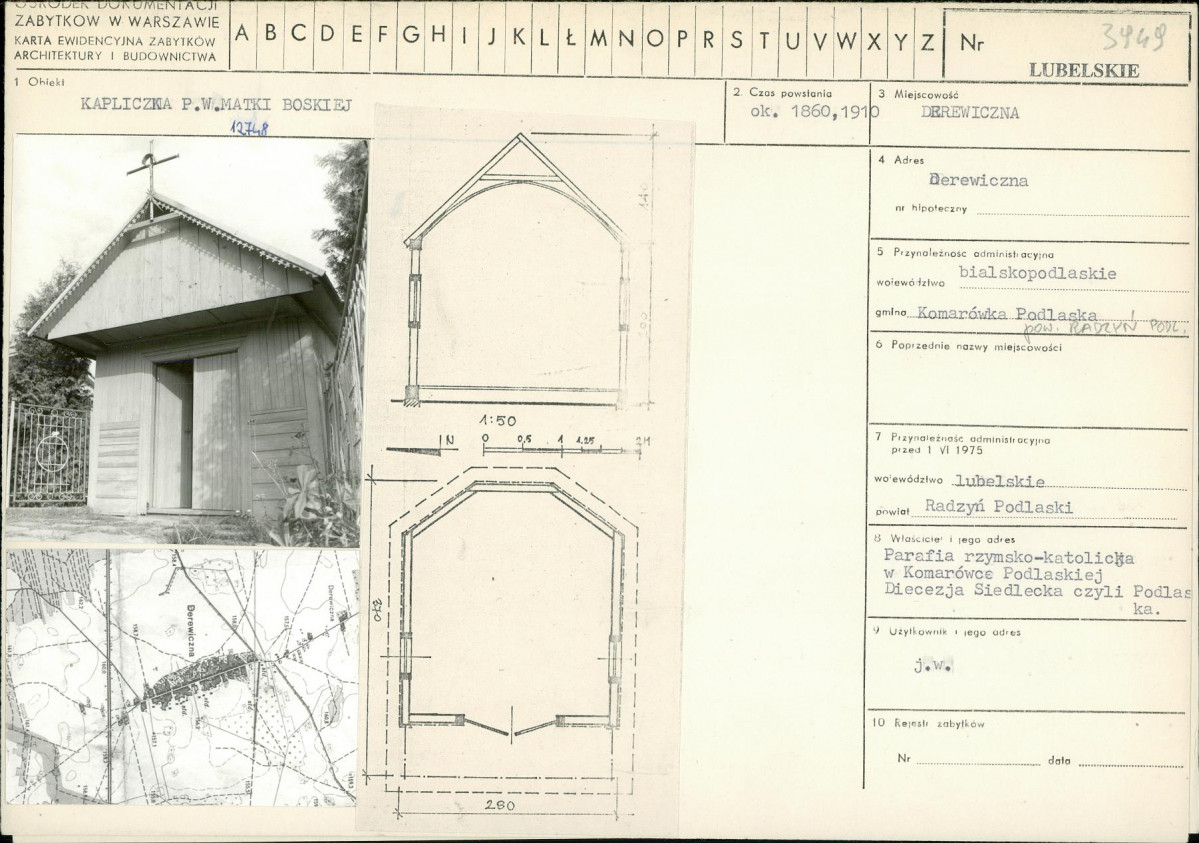 OŚRODEK DOKUMENTACJI
ZABYTKÓW W WARSZAWIE
KARTA EWIDENCYJNA ZABYTKÓW
ARCHITEKTURY I BUDOWNICTWA
A B C D E F G H I J K L Ł M N O P R S T U V W X Y Z
Nr
3949
LUBELSKIE
1 Obiekt
KAPLICZKA P.W.MATKI BOSKIEJ
12748
2. Czas powstania
ok. 1860,1910
3 Miejscowość
DEREWICZNA
4 Adres
Derewiczna
nr hipoteczny
5 Przynależność administracyjna
województwo bialskopodlaskie
gmina Komarówka Podlaska
pow. RADZYŃ PODL.
6 Poprzednie nazwy miejscowości
7 Przynależność administracyjna
przed 1 VI 1975
województwo lubelskie
powiat Radzyń Podlaski
8 Właściciel i jego adres
Parafia rzymsko-katolicka
w Komarówce Podlaskiej
Diecezja Siedlecka czyli Podlas
ka.
9 Użytkownik i jego adres
j.w.
10 Rejestr zabytków
Nr data
1:50
N 0 0,5 1 1.25 2M
280
Derewiczna
Derewiczna